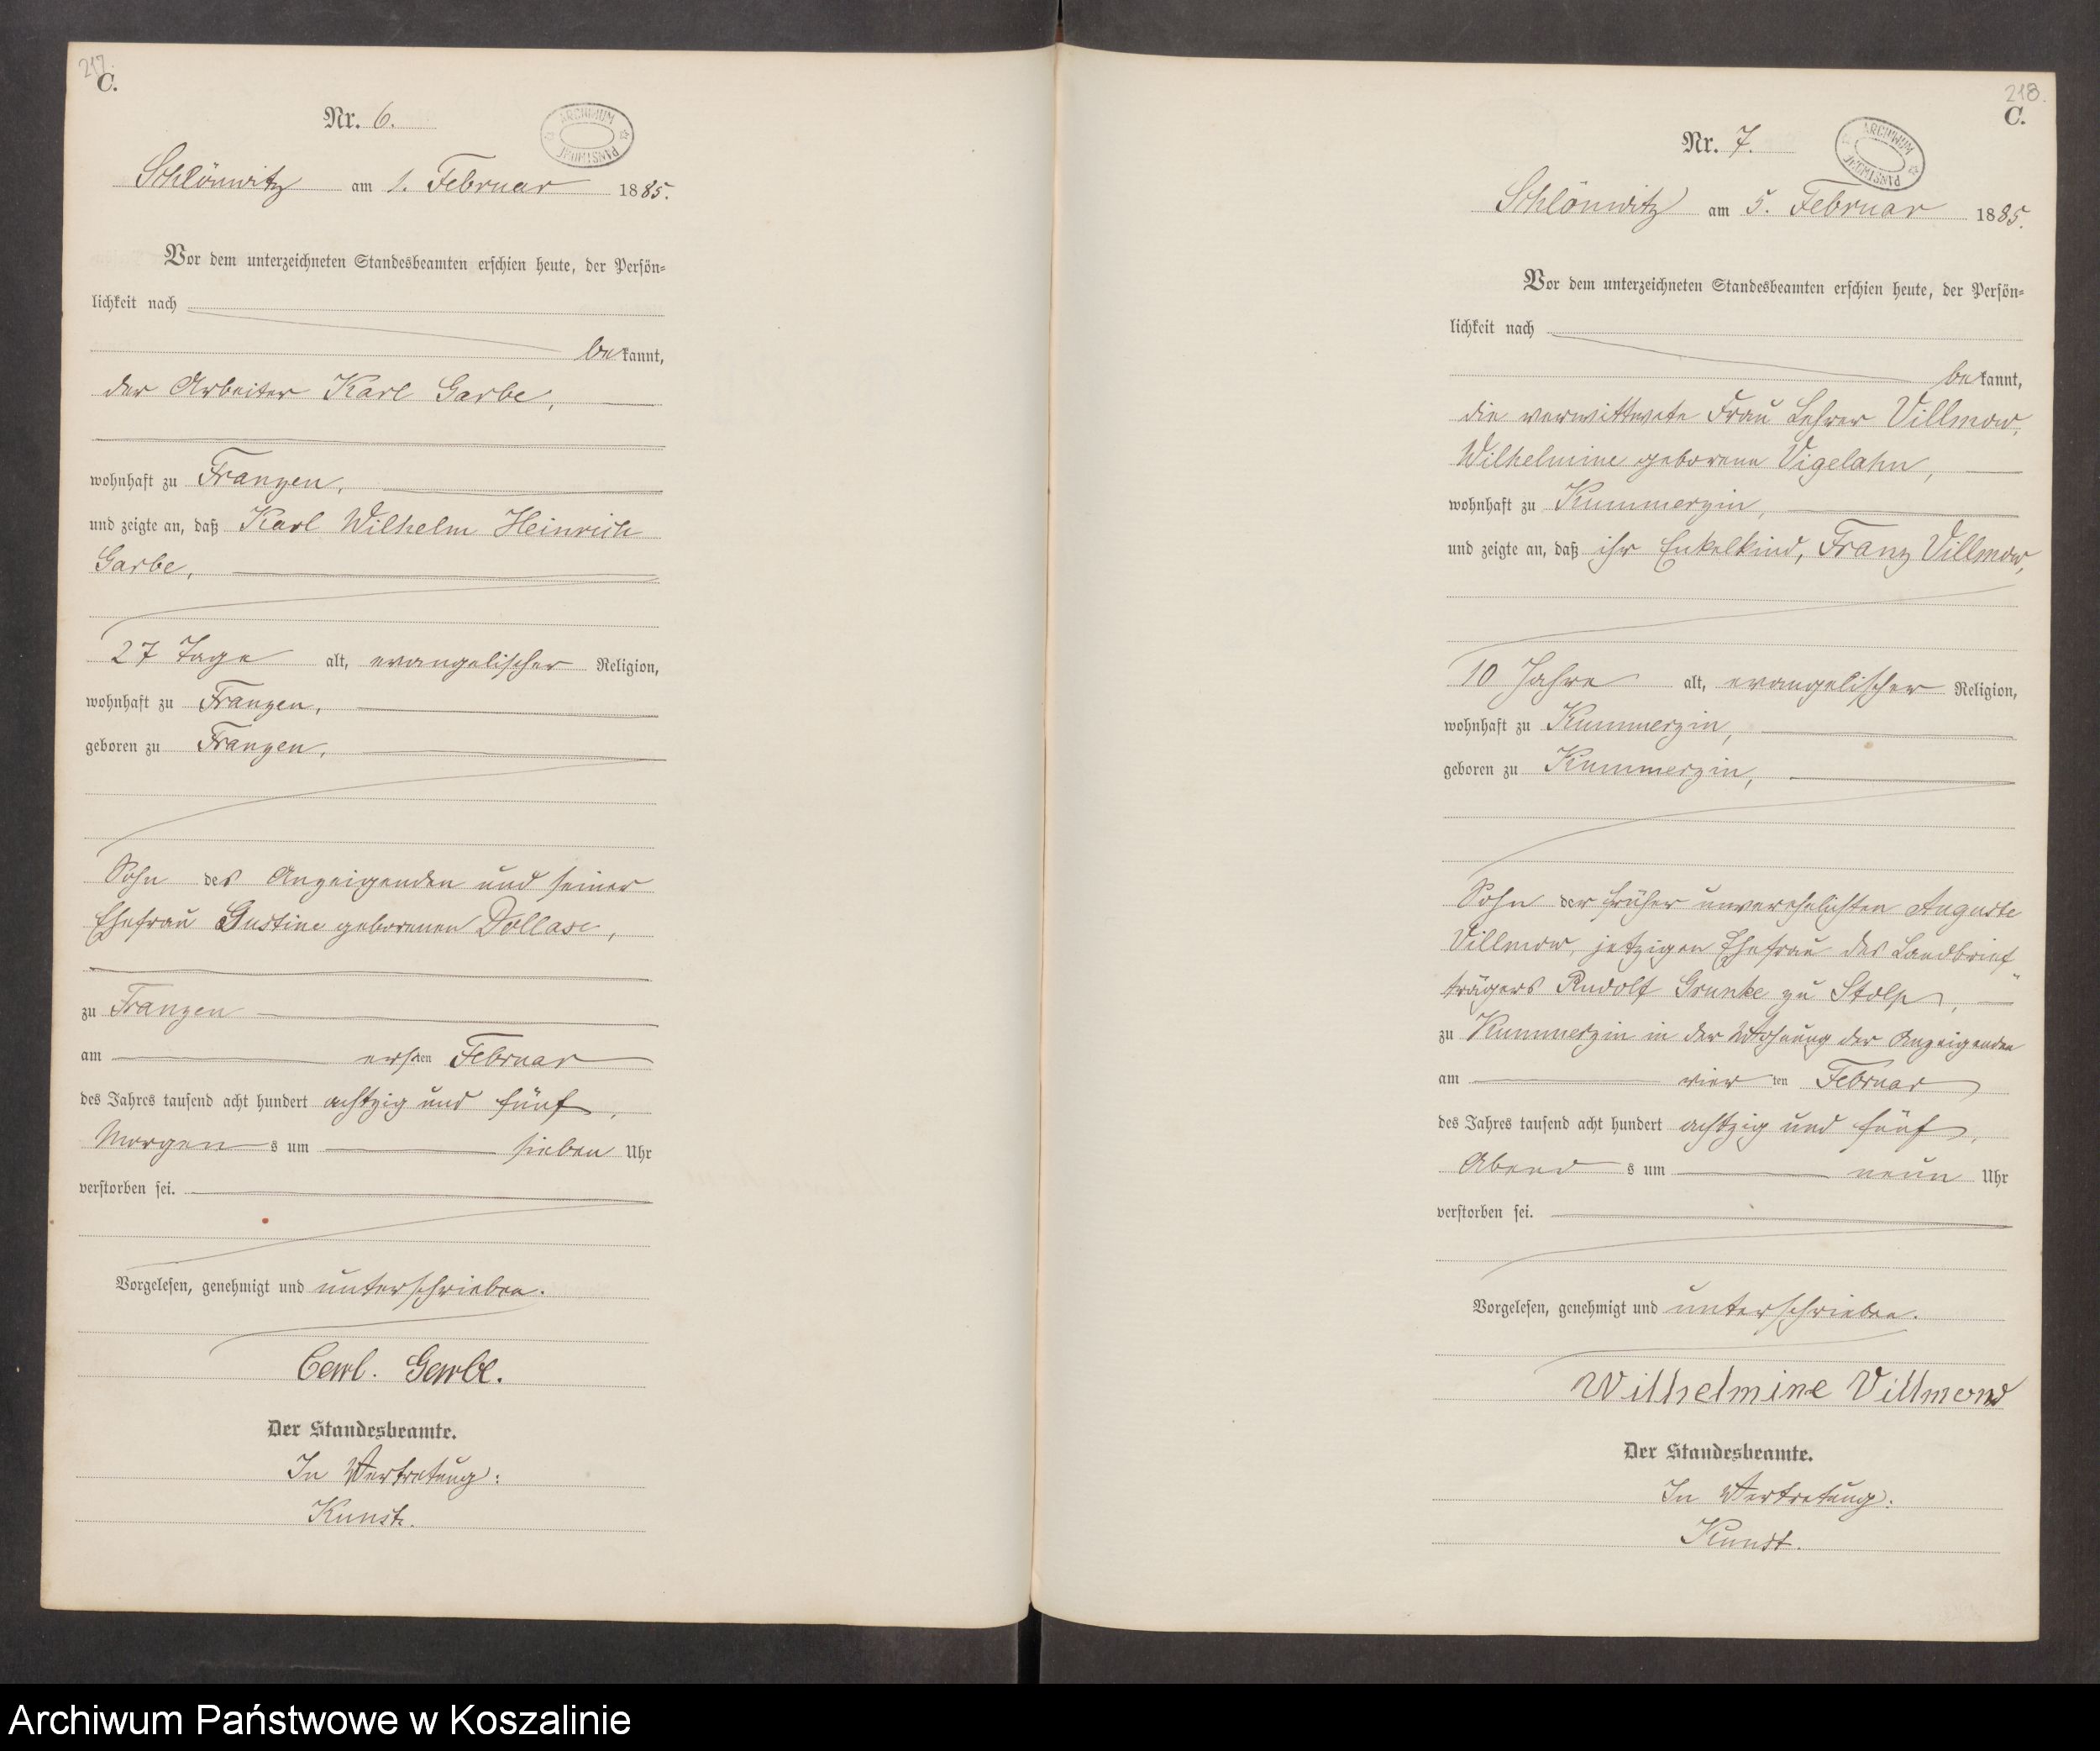 217.
C.
Nr. 6.
ARCHIWUM PAŃSTWOWE
Schlönwitz am 1. Februar 1885.
Vor dem unterzeichneten Standesbeamten erschien heute, der Persön-
lichkeit nach
bekannt,
der Arbeiter Karl Garbe,
wohnhaft zu Franzen,
und zeigte an, daß Karl Wilhelm Heinrich
Garbe,
27 Tage alt, evangelischer Religion,
wohnhaft zu Franzen,
geboren zu Franzen,
Sohn des Anzeigenden und seiner
Ehefrau Gustine geborenen Dollase,
zu Franzen
am ersten Februar
des Jahres tausend acht hundert achtzig und fünf,
Morgens um sieben Uhr
verstorben sei.
Vorgelesen, genehmigt und unterschrieben.
Carl. Garbe.
Der Standesbeamte.
In Vertretung:
Kunst.
218.
C.
Nr. 7.
ARCHIWUM PAŃSTWOWE
Schlönwitz am 5. Februar 1885.
Vor dem unterzeichneten Standesbeamten erschien heute, der Persön-
lichkeit nach
bekannt,
die verwittwete Frau Lehrer Villmow,
Wilhelmine geborene Vigelahn,
wohnhaft zu Kummerzin,
und zeigte an, daß ihr Enkelkind, Franz Villmow,
10 Jahre alt, evangelischer Religion,
wohnhaft zu Kummerzin,
geboren zu Kummerzin,
Sohn der früher unverehelichten Auguste
Villmow, jetzigen Ehefrau des Landbrief
trägers Rudolf Grunke zu Stolp,
zu Kummerzin in der Wohnung der Anzeigenden
am vierten Februar
des Jahres tausend acht hundert achtzig und fünf,
Abends um neun Uhr
verstorben sei.
Vorgelesen, genehmigt und unterschrieben.
Wilhelmine Villmow
Der Standesbeamte.
In Vertretung:
Kunst.
Archiwum Państwowe w Koszalinie